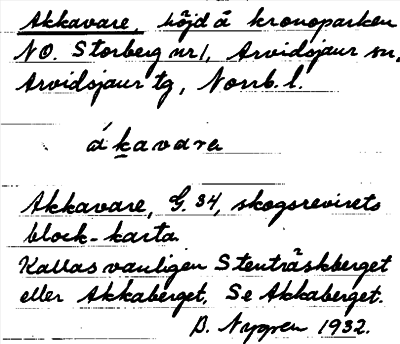 Akkavare, höjd å kronoparken
NO. Storberg nr 1, Arvidsjaur sn,
Arvidsjaur tg, Norrb. l.
ákavarɐ
Akkavare, G. 34, skogsrevirets
block-karta.
Kallas vanligen Stenträskberget
eller Akkaberget. Se Akkaberget.
B. Nygren 1932.